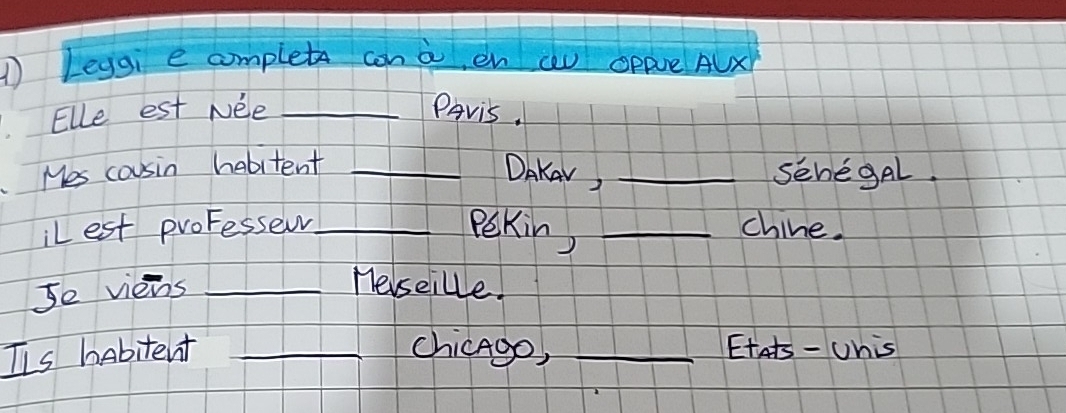 1) Leggi e completA con à, en au oppure AUX
Elle est Née ______ PAris.
Mes cousin habitent ______ DAKAr, ______ SénégAL.
iL est proFesseur ______ PéKin, ______ Chine.
Je viens ______ Merseille.
ILs hAbitent ______ ChicAgo, ______ EtAts-Unis